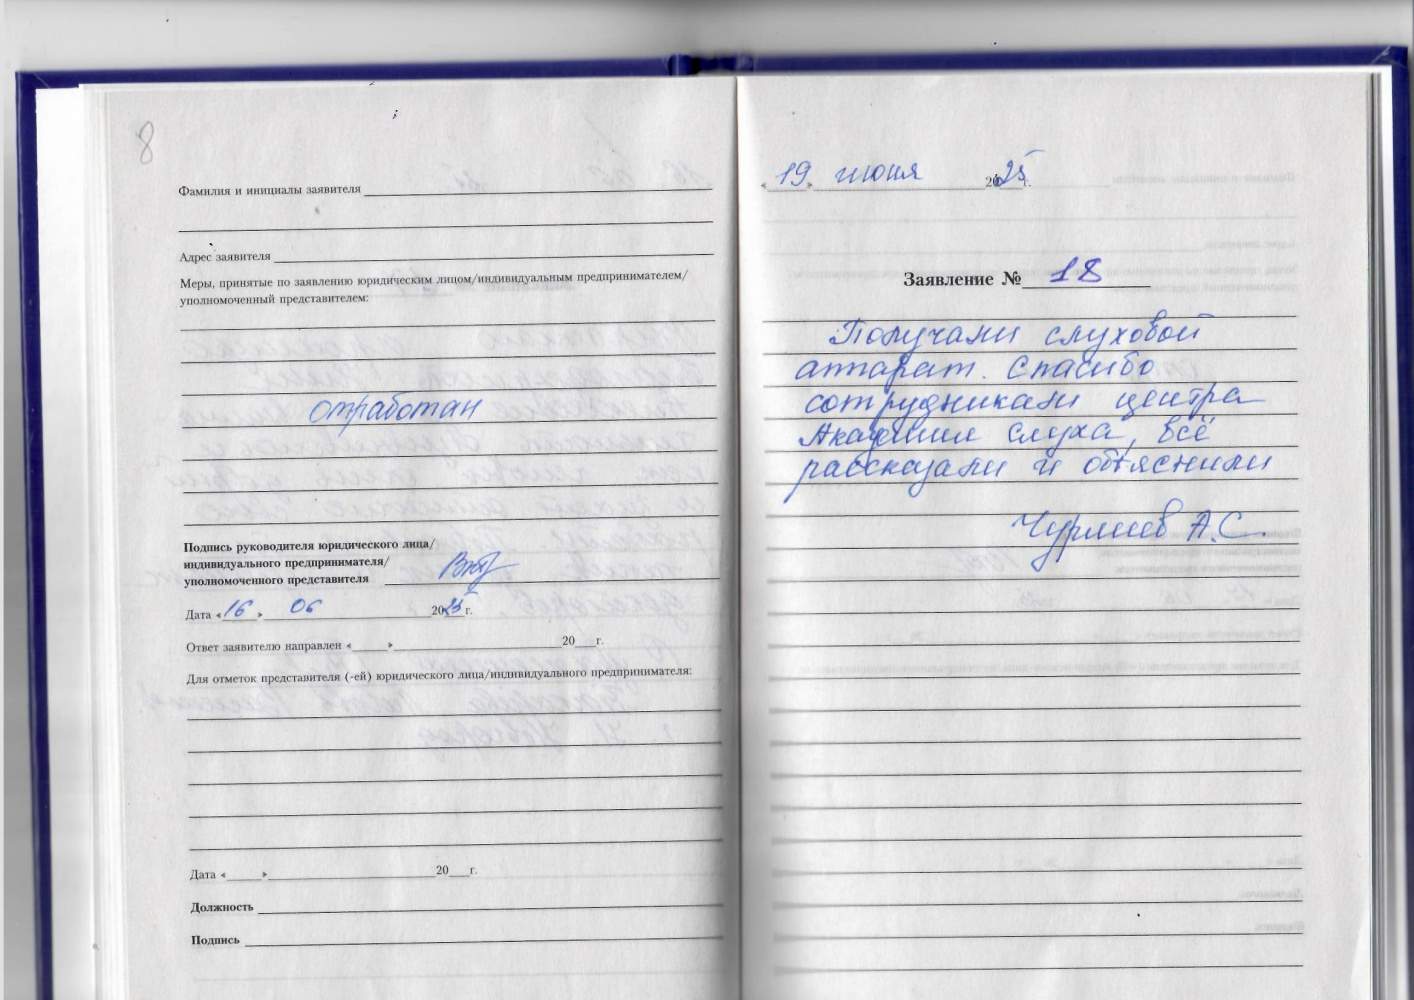 8
Фамилия и инициалы заявителя
Адрес заявителя
Меры, принятые по заявлению юридическим лицом/индивидуальным предпринимателем/
уполномоченный представителем:
отработан
Подпись руководителя юридического лица/
индивидуального предпринимателя/
уполномоченного представителя
Дата «16» 06 2025 г.
Ответ заявителю направлен «    » 20    г.
Для отметок представителя (-ей) юридического лица/индивидуального предпринимателя:
Дата «    » 20    г.
Должность
Подпись
«19» июня 2025 г.
Заявление № 18
Получали слуховой
аппарат. Спасибо
сотрудникам центра
Академия слуха, всё
рассказали и объяснили
А.С.